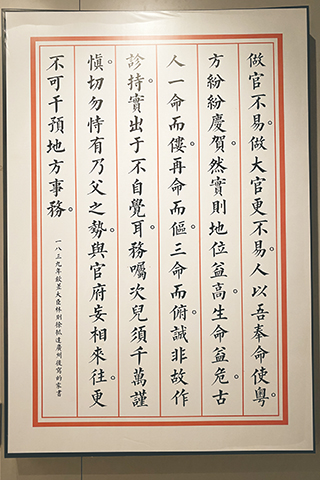 做官不易。做大官更不易。人以吾奉命使粵。
方紛紛慶賀。然實則地位益高。生命益危。古
人一命而僂。再命而傴。三命而俯。誠非故作
診。持實出于不自覺耳。務囑次兒須千萬謹
慎。切勿恃有乃父之勢。與官府妄相來往。更
不可干預地方事務。
一八三九年欽差大臣林則徐抵達廣州後寫的家書